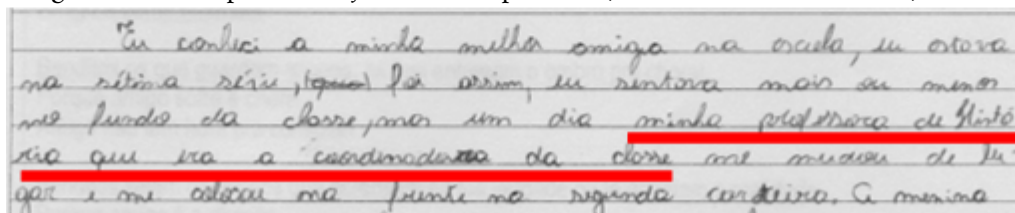 Eu conheci a minha melhor amiga na escola, eu estava
na sétima série, foi assim, eu sentava mais ou menos
no fundo da classe, mas um dia minha professora de Histó
ria que era a coordenadora da classe me mudou de lu
gar e me colocou na frente na segunda carteira. A menina